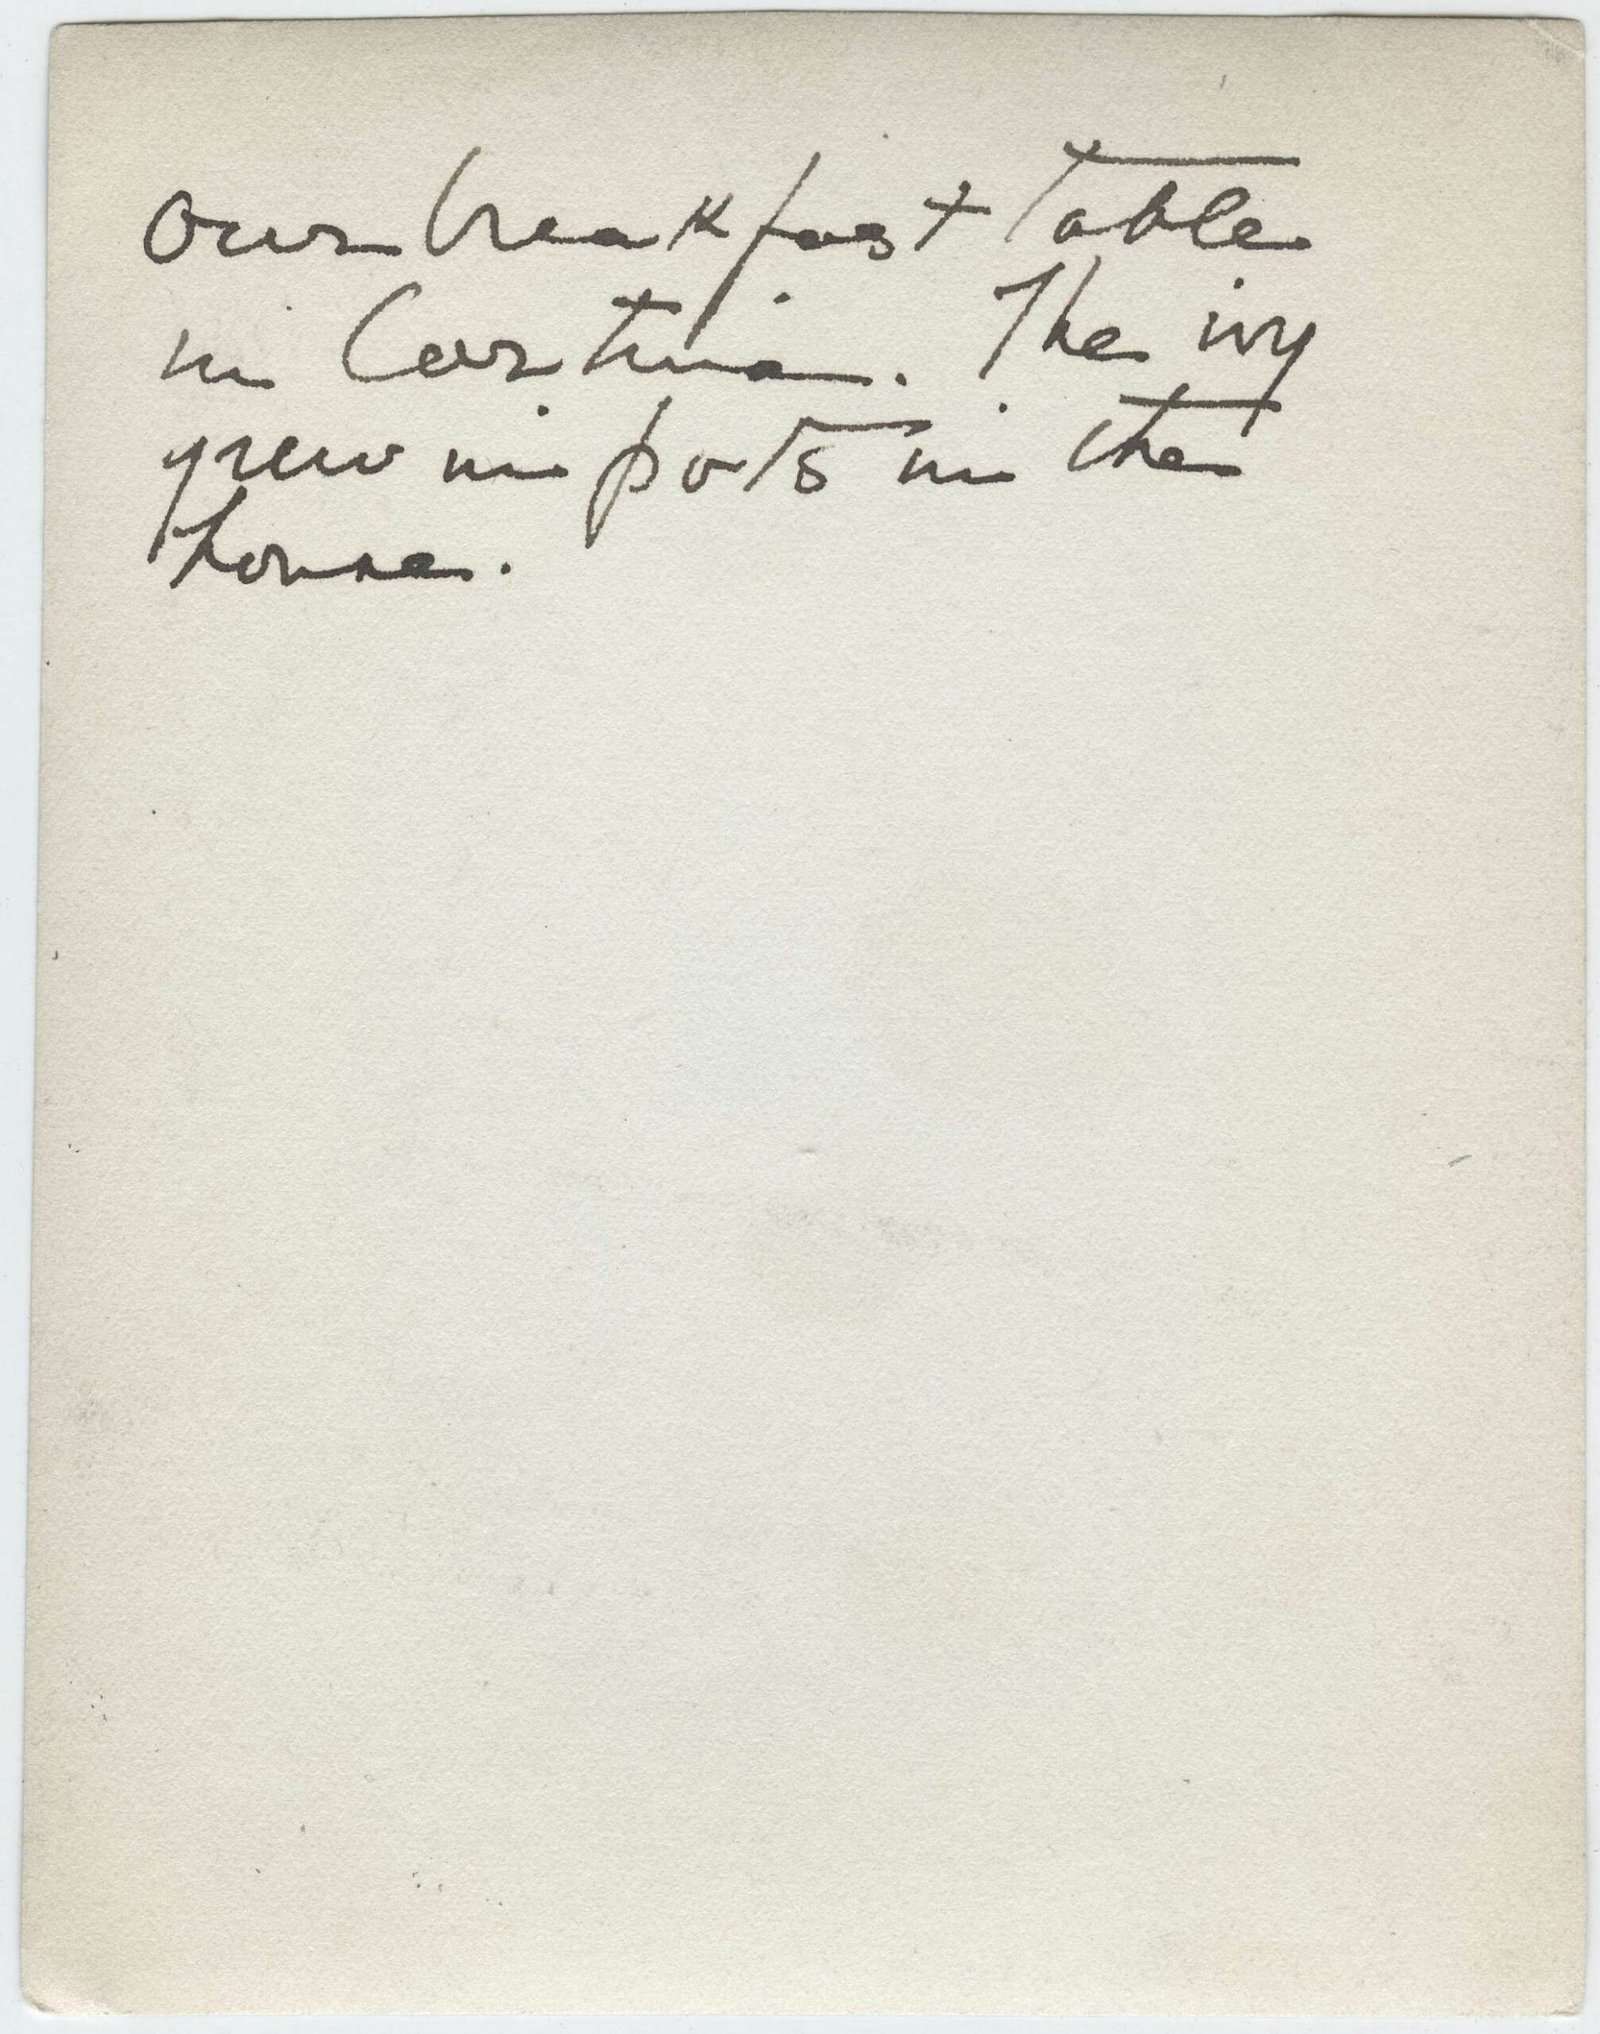 Our breakfast table
in Cortina. The ivy
grew in pots in the
house.